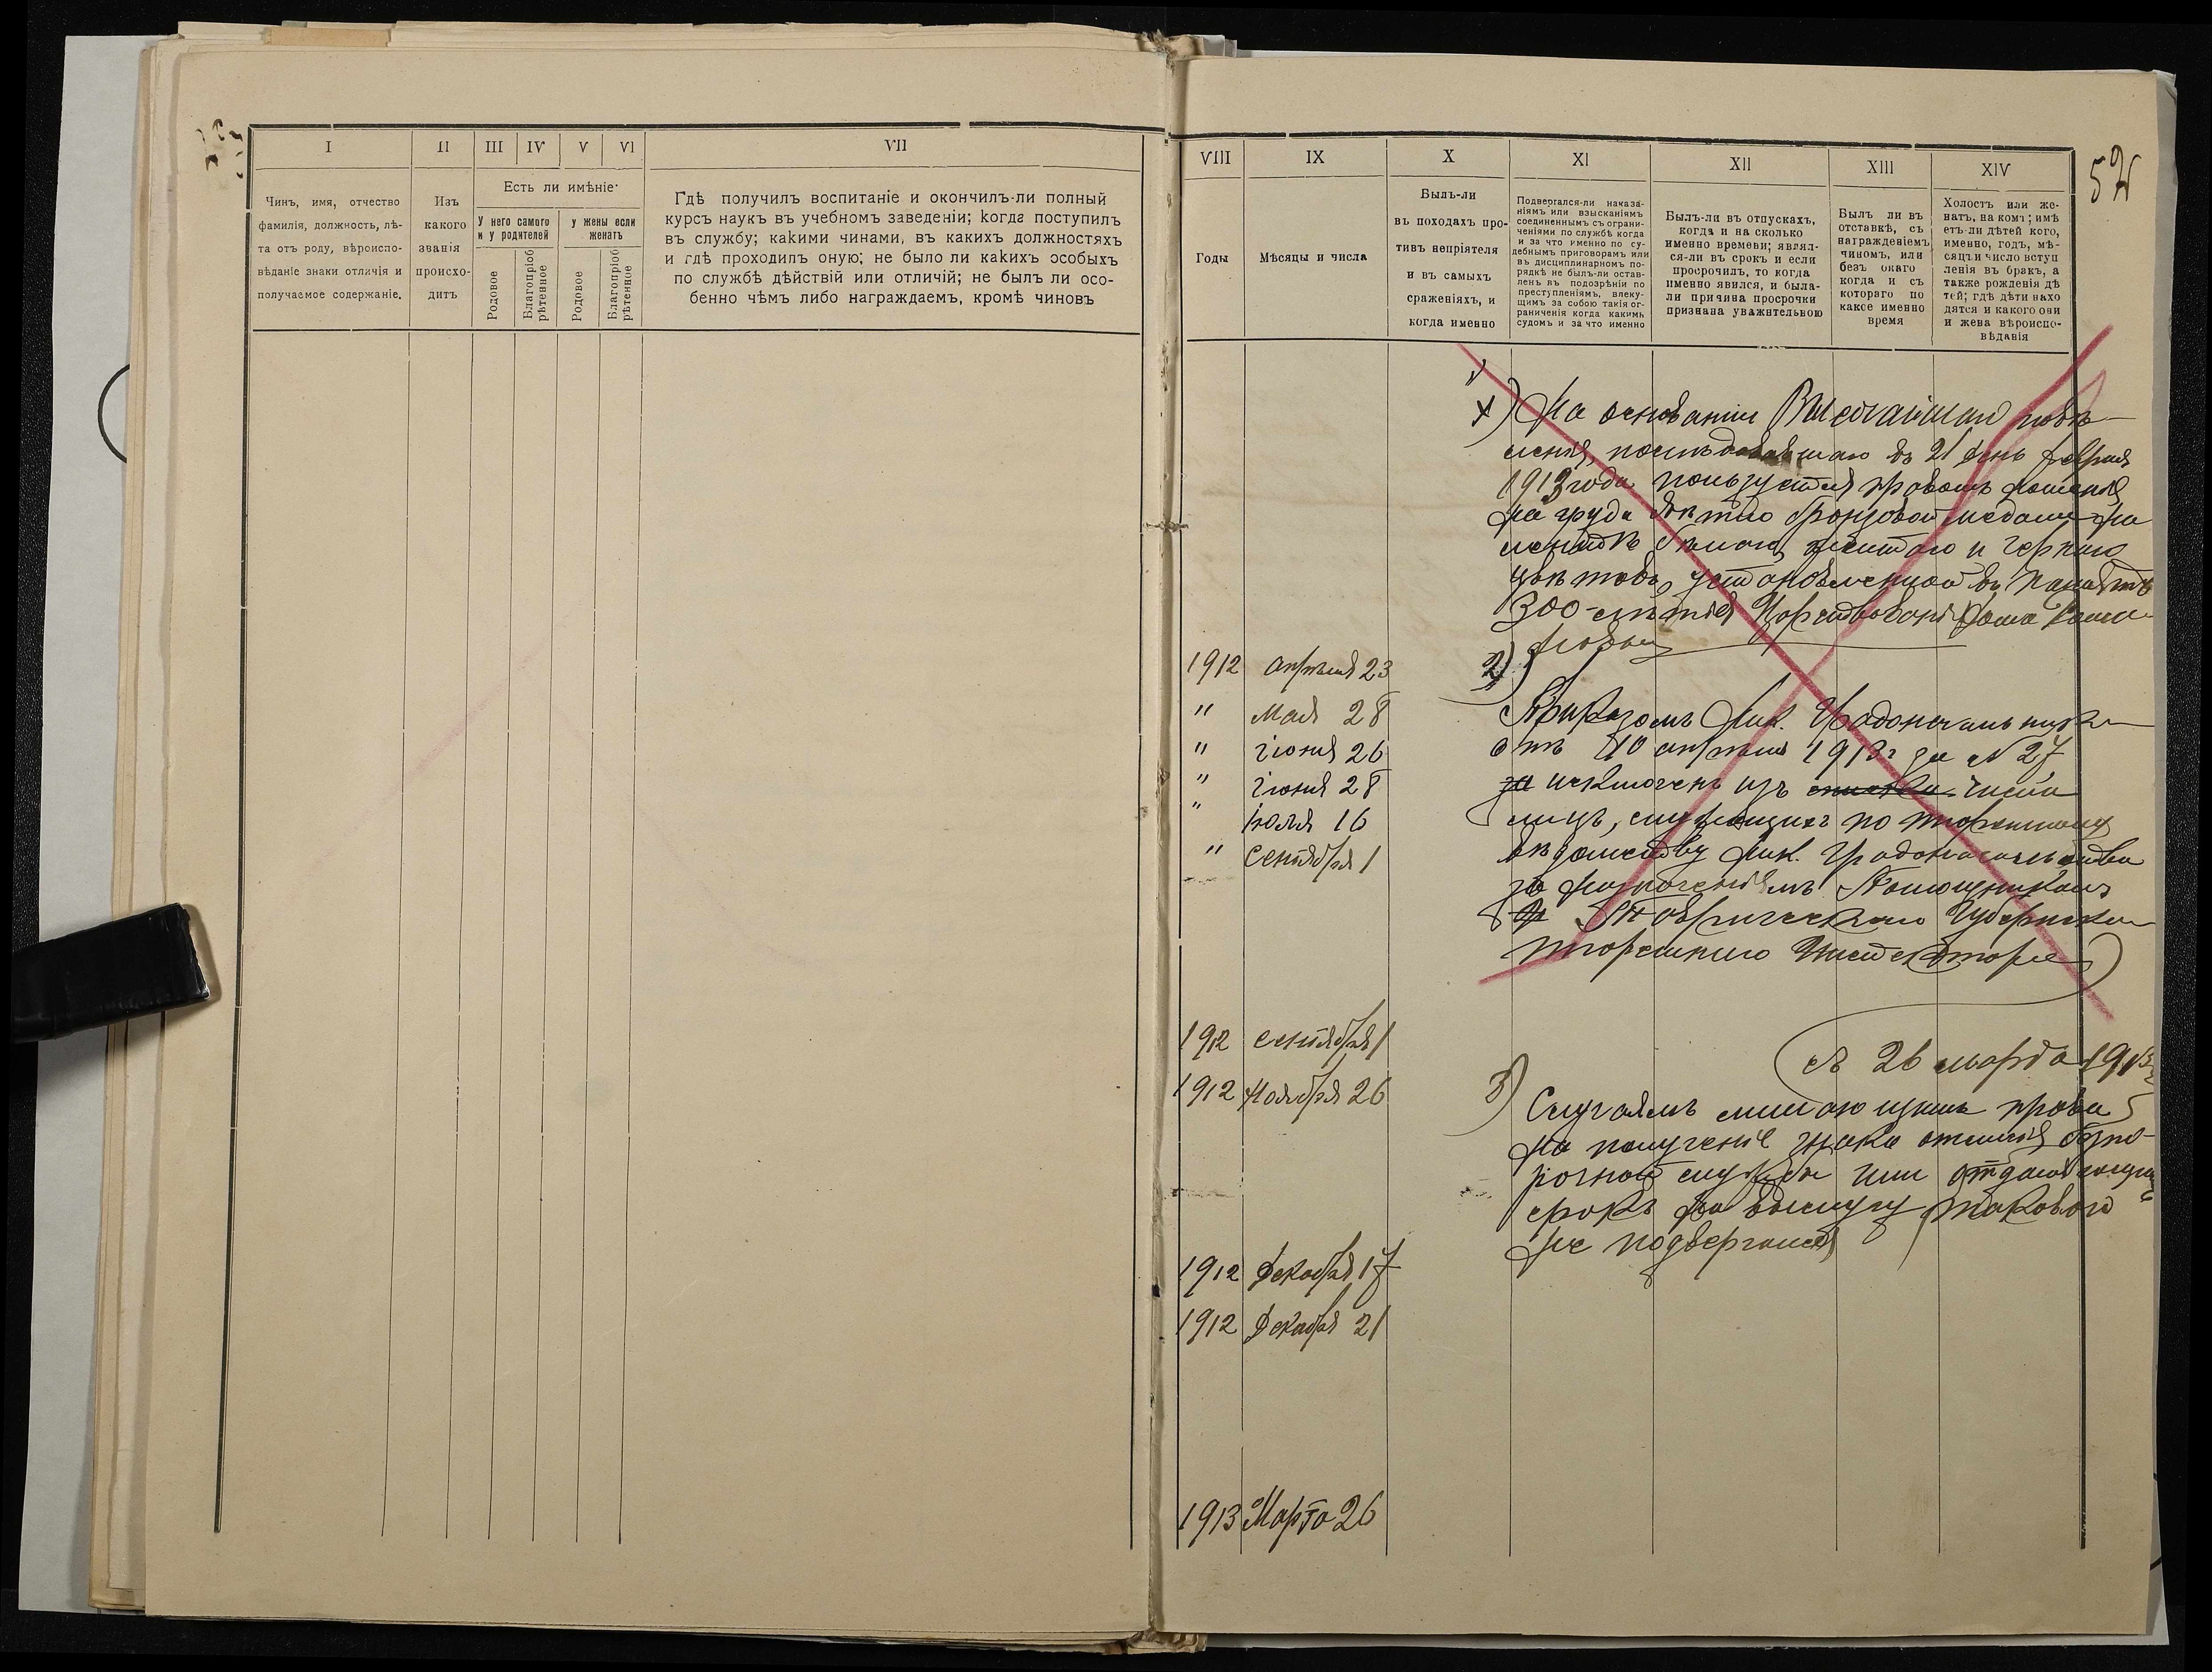 I
II
III
IV
V
VI
VII
Чинъ, имя, отчество
фамилія, должность, лѣ-
та отъ роду, вѣроиспо-
вѣданіе знаки отличія и
получаемое содержаніе.
Изъ
какого
званія
происхо-
дитъ
Есть ли имѣніе
У него самого
и у родителей
у жены если
женатъ
Родовое
Благопріоб
рѣтенное
Родовое
Благопріоб
рѣтенное
Гдѣ получилъ воспитаніе и окончилъ-ли полный
курсъ наукъ въ учебномъ заведеніи; когда поступилъ
въ службу; какими чинами, въ какихъ должностяхъ
и гдѣ проходилъ оную; не было ли какихъ особыхъ
по службѣ дѣйствій или отличій; не былъ ли осо-
бенно чѣмъ либо награждаемъ, кромѣ чиновъ
VIII
IX
X
XI
XII
XIII
XIV
Годы
Мѣсяцы и числа
Былъ-ли
въ походахъ про-
тивъ непріятеля
и въ самыхъ
сраженіяхъ, и
когда именно
Подвергался-ли наказа-
ніямъ или взысканіямъ
соединеннымъ съ ограни-
ченіями по службѣ когда
и за что именно по су-
дебнымъ приговорамъ или
въ дисциплинарномъ по-
рядкѣ не былъ-ли остав-
ленъ въ подозрѣніи по
преступленіямъ, влеку-
щимъ за собою такія ог-
раниченія когда какимъ
судомъ и за что именно
Былъ-ли въ отпускахъ,
когда и на сколько
именно времени; являл-
ся-ли въ срокъ и если
просрочилъ, то когда
именно явился, и была-
ли причина просрочки
признана уважительною
Былъ ли въ
отставкѣ, съ
награжденіемъ
чиномъ, или
безъ онаго
когда и съ
котораго по
какое именно
время
Холостъ или же-
натъ, на комъ; имѣ
етъ-ли дѣтей кого,
именно, годъ, мѣ-
сяцъ и число вступ
ленія въ бракъ, а
также рожденія дѣ
тей; гдѣ дѣти нахо
дятся и какого они
и жена вѣроиспо-
вѣданія
На основаніи Высочайшаго повѣ-
ленія, послѣдовавшаго въ 21 день февраля
1913 года пользуется правомъ ношенія
на груди свѣтло бронзовой медали на
лентѣ бѣлаго, желтаго и чернаго
цвѣтовъ, установленной въ память
300-лѣтія Царствованія Дома Рома-
новыхъ
1912 апрѣля 23
" Мая 28
" іюня 26
" іюня 28
" іюля 16
" Сентября 1
2)
Приказомъ Ник. Градоначальника
отъ 10 апрѣля 1913 г за № 27
за исключенъ изъ списка числа
лицъ, служащихъ по тюремному
вѣдомству Ник. Градоначальства
за назначеніемъ Помощникомъ
Таврическаго Губернска
тюремнаго Инспектора
1912 сентября 1
1912 Ноября 26
съ 26 марта 1913
3)
Случаямъ лишающимъ права
на полученіе знака отличія безпо-
рочной службы или отдаляющимъ
срокъ на выслугу такового
не подвергался
1912 Декабря 17
1912 Декабря 21
1913 Марта 26